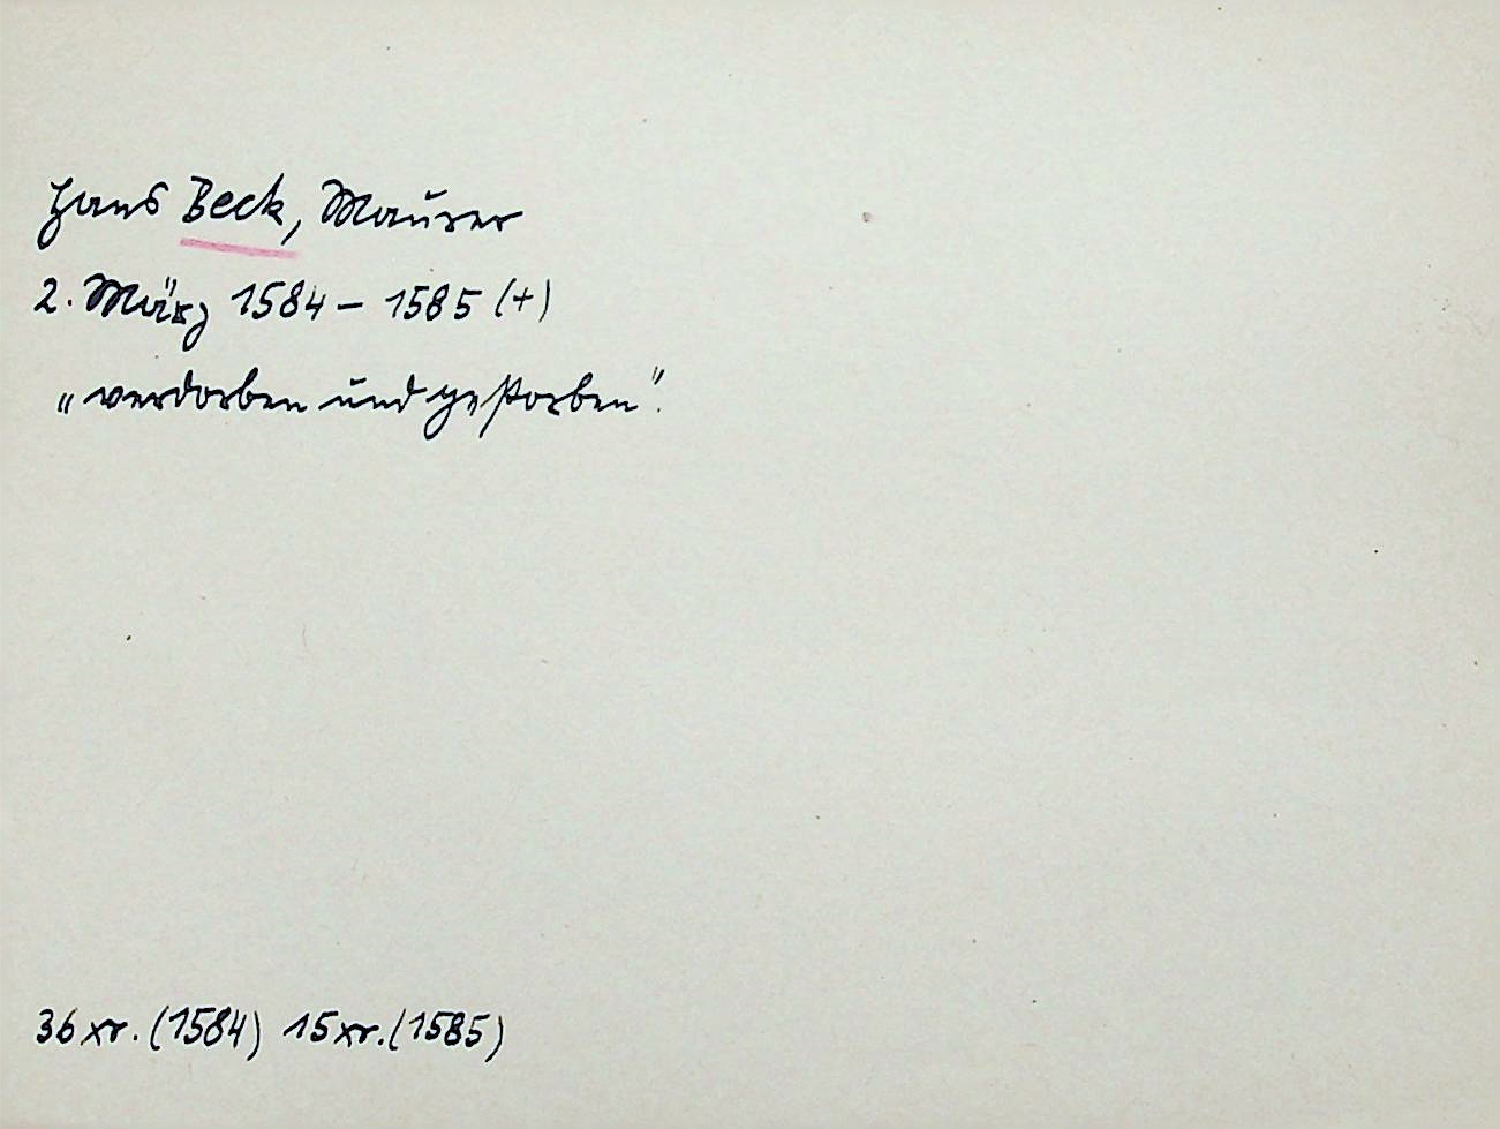 Hans Beck, Maurer
2. März 1584 – 1585 (+)
„verdorben und gestorben".
36 xr. (1584) 15 xr. (1585)